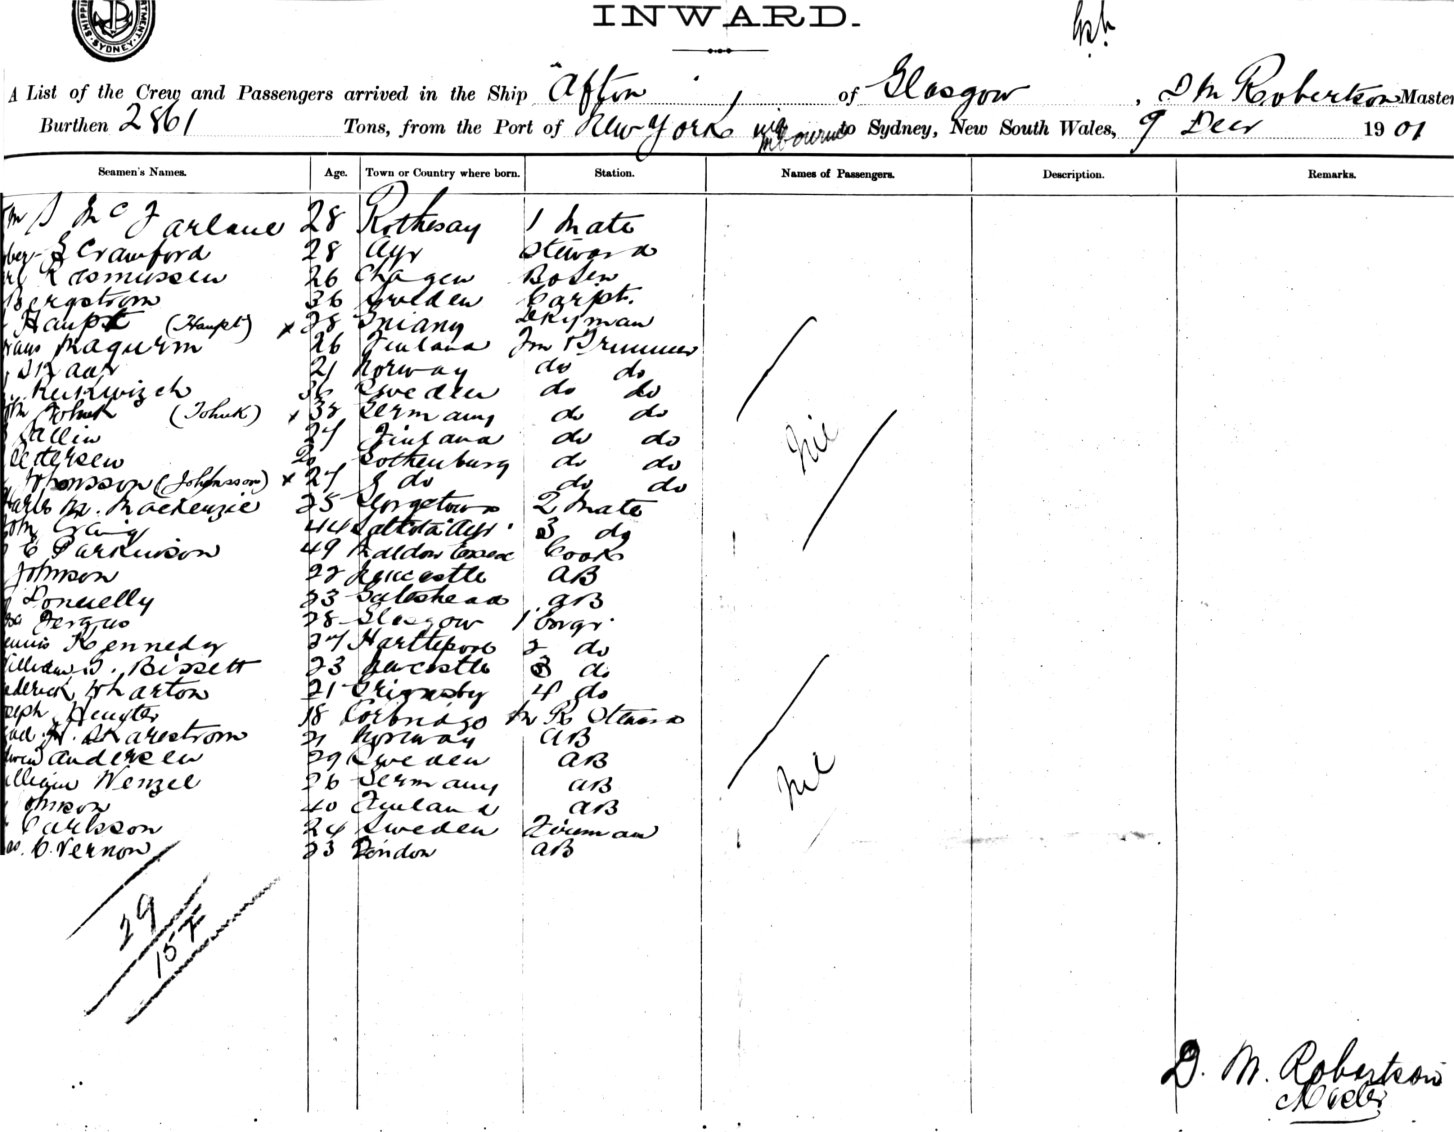 INWARD.
SYDNEY
A List of the Crew and Passengers arrived in the Ship "Afton" of Glasgow, D M Robertson Master
Burthen 2861 Tons, from the Port of New York via Melbourne to Sydney, New South Wales, 9 Decr 1901
Seamen's Names. Age. Town or Country where born. Station. Names of Passengers. Description. Remarks.
Mc Farlane 28 Rothesay 1 Mate
Crawford 28 Ayr Steward
Rasmussen 26 Bosn
Bergstrom 36 Sweden Carpt.
Haupt (Haupt) x 28 Dkyman
26 Finland Fm Trimmer
21 Norway do do
36 Sweden do do
Johuk (Johuk) x 38 Germany do do
Sallin 27 Finland do do
Pedersen Gothenburg do do
Johnsson (Johnsson) x 27 do do do
Charles M. Mackenzie 25 Georgetown 2 Mate
John Craig 44 3 do
C Parkinson 49 Maldon Essex Cook
Johnson 22 Newcastle AB
Donnelly 23 Gateshead AB
Fergus 28 Glasgow 1 Engr.
Dennis Kennedy 27 Hartlepool 2 do
William G. Bissett 23 Newcastle 3 do
Frederick Wharton 21 Grimsby 4 do
Joseph Hunter 18 Corbridge M R Steward
Skarestrom 21 Norway AB
Andersen 29 Sweden AB
William Wenzel 26 Germany AB
Johnson 40 Finland AB
Carlsson 24 Sweden Fireman
C. Vernon 23 London AB
Nil
Nil
29
15 F
D. M. Robertson
Master